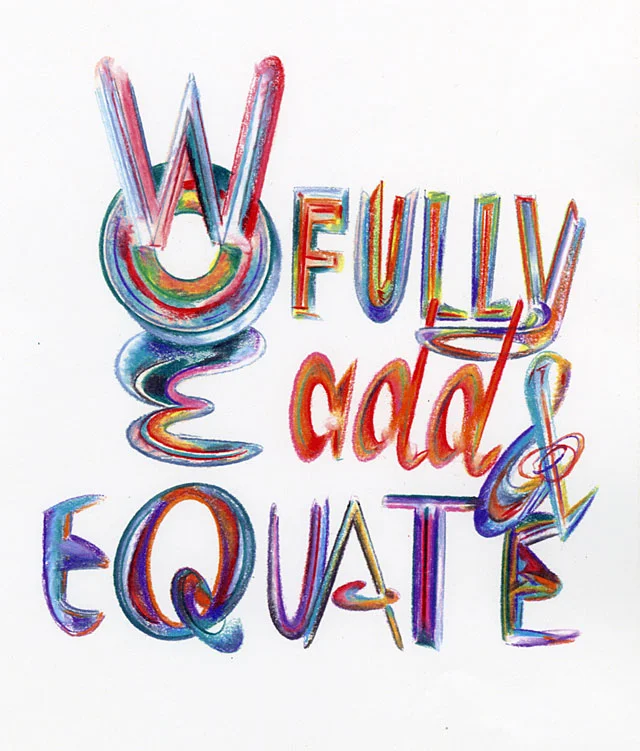 WOEFULLY
add &
EQUATE